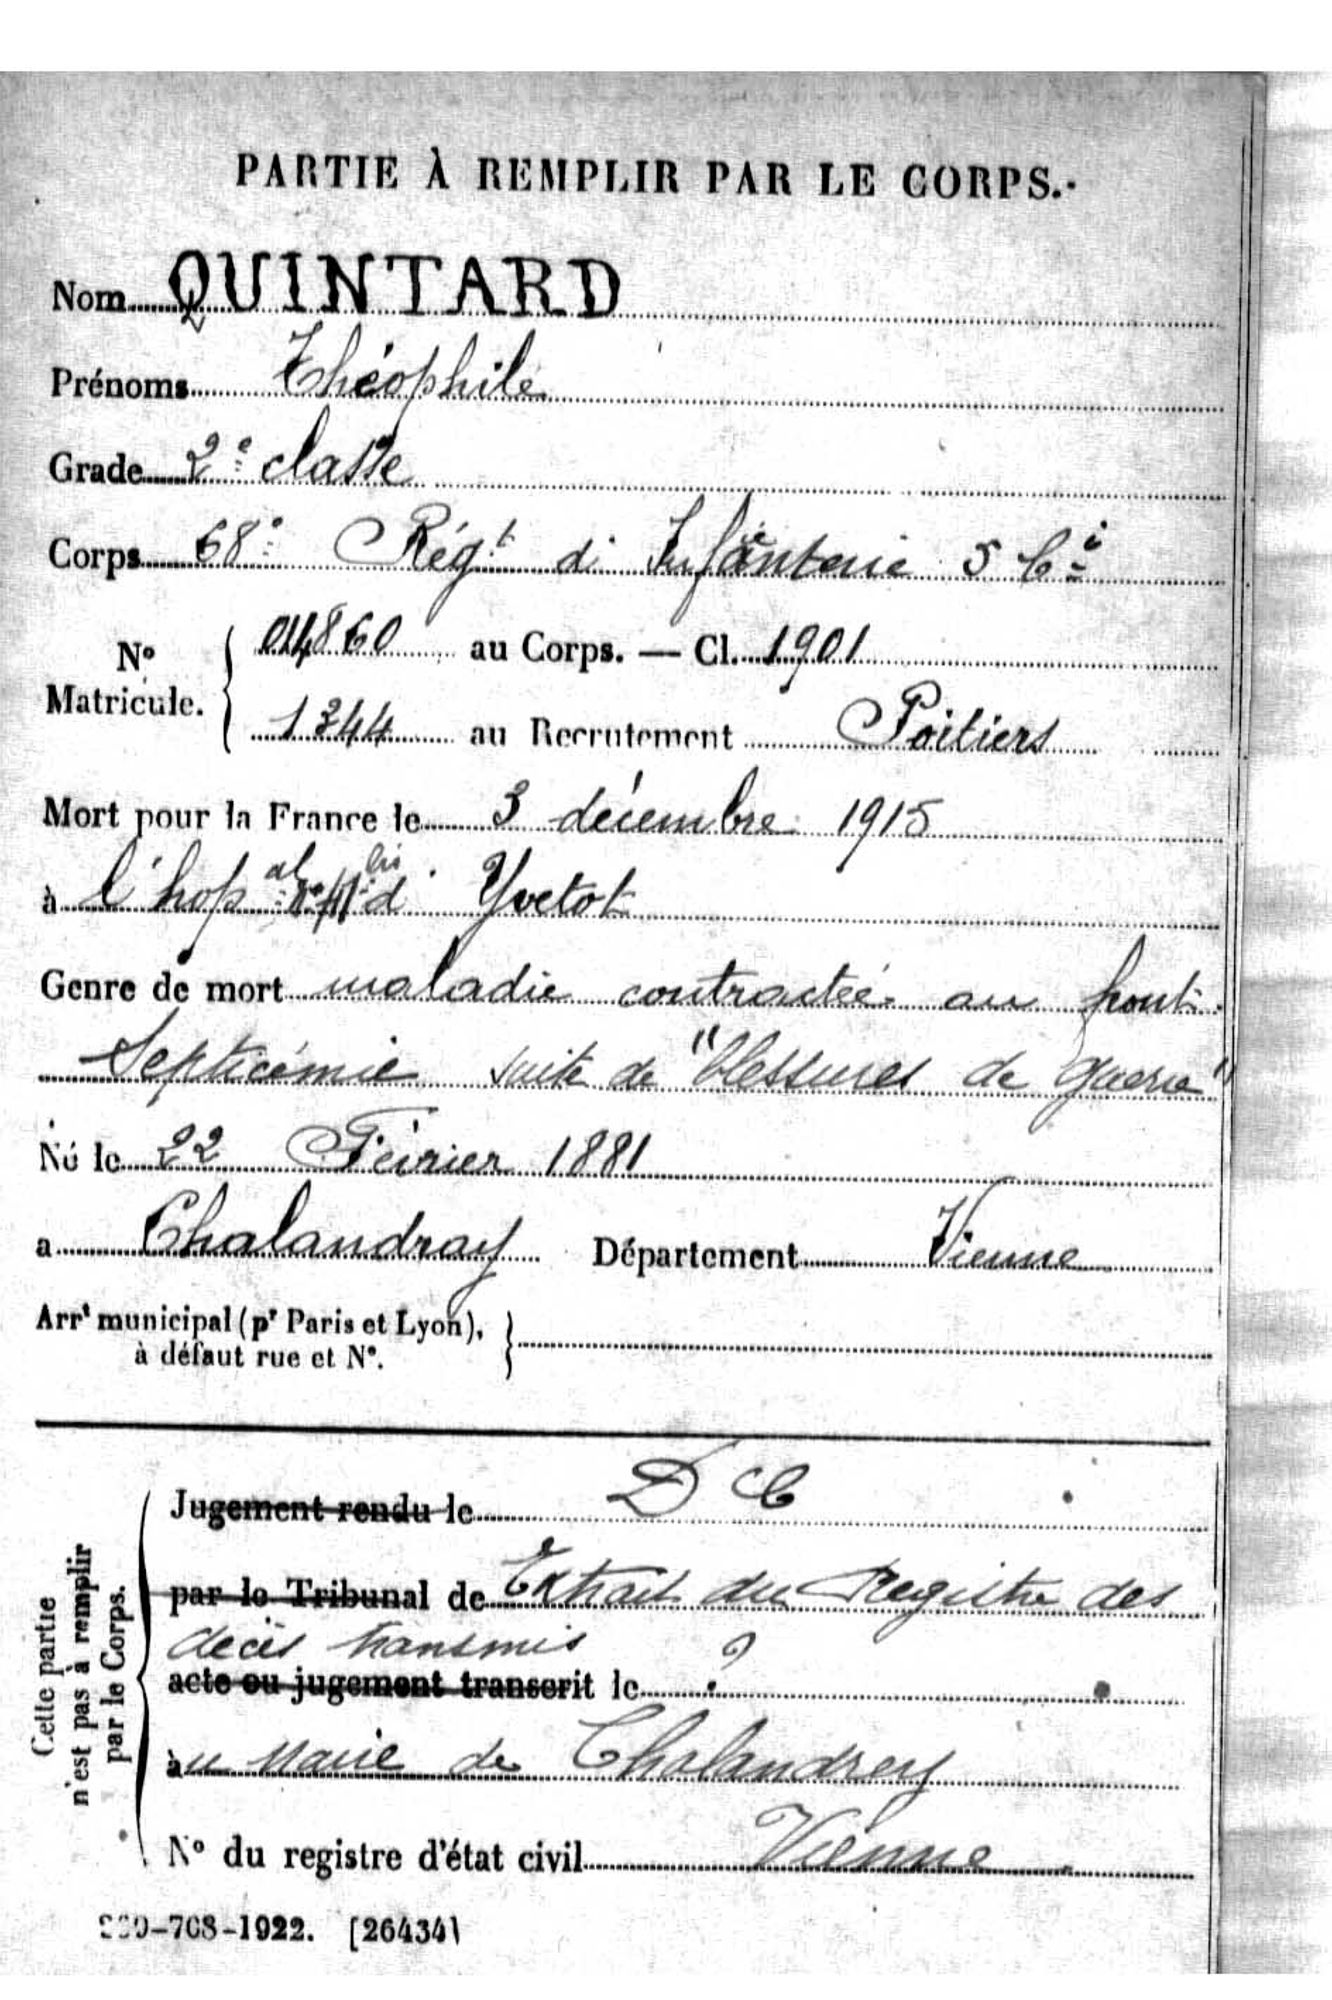 PARTIE À REMPLIR PAR LE CORPS.
Nom QUINTARD
Prénoms Théophile
Grade 2e classe
Corps 68e Régt d'Infanterie 5 Cie
No Matricule. { 014860 au Corps. — Cl. 1901
1344 au Recrutement Poitiers
Mort pour la France le 3 décembre 1915
à l'hopal bis d'Yvetot
Genre de mort maladie contractée au front.
Septicémie suite de "blessures de guerre"
Né le 22 Février 1881
a Chalandray Département Vienne
Arrt municipal (pr Paris et Lyon),
à défaut rue et No.
Cette partie n'est pas à remplir par le Corps.
Jugement rendu le D C
par le Tribunal de Extrait du Registre des
décès transmis ?
acte ou jugement transcrit le
au Marie de Chalandray
No du registre d'état civil Vienne
-708-1922. [26434]